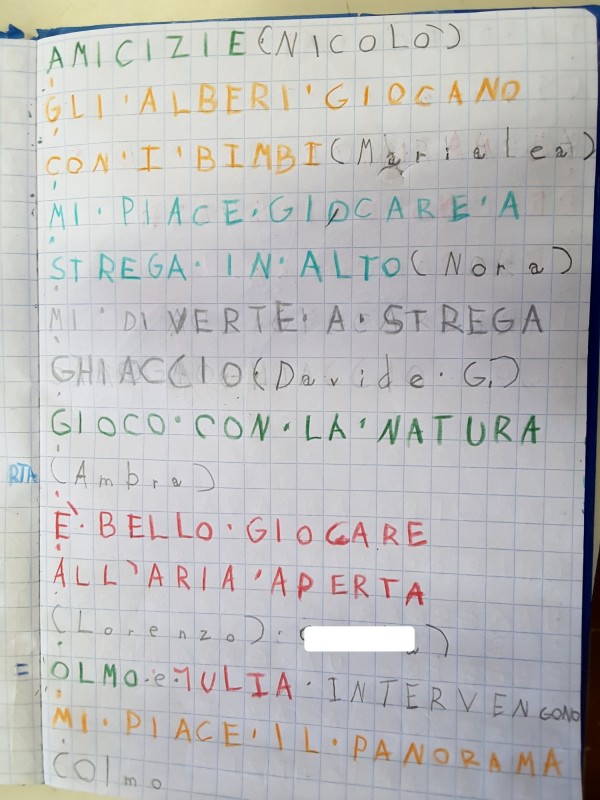 AMICIZIE (NICOLÒ)
GLI'ALBERI'GIOCANO
CON'I'BIMBI (Marialea)
MI·PIACE·GIOCARE'A
STREGA·IN·ALTO (Nora)
MI·DIVERTE·A·STREGA
GHIACCIO (Davide·G.)
GIOCO·CON·LA'NATURA
RTA
(Ambra)
È·BELLO·GIOCARE
ALL'ARIA'APERTA
(Lorenzo)·( )
= OLMO·e·IULIA·INTERVENGONO
MI·PIACE·IL·PANORAMA
(Olmo